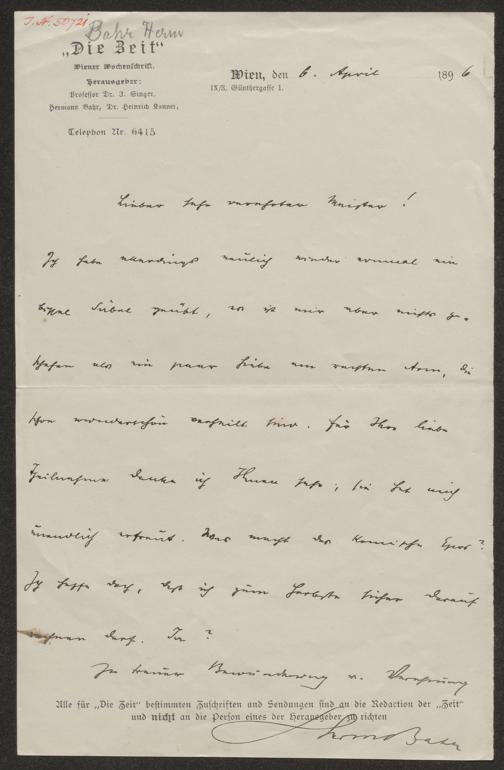 I. N. 50721
Bahr Herm
„Die Zeit“
Wiener Wochenschrift.
Herausgeber:
Professor Dr. I. Singer,
Hermann Bahr, Dr. Heinrich Kanner.
Telephon Nr. 6415
Wien, den 6. April 1896
IX/3, Günthergasse 1.
Lieber sehr verehrter Meister!
Ich habe allerdings neulich wieder einmal ein
bissel Säbel geübt, es ist mir aber nichts ge-
schehen als ein paar Hiebe am rechten Arm, die
schon wunderschön verheilt sind. Für Ihre liebe
Theilnahme danke ich Ihnen sehr; sie hat mich
unendlich erfreut. Was macht das komische Epos?
Ich hoffe doch, daß ich zum Herbste sicher darauf
rechnen darf. Ja?
In treuer Bewunderung u. Verehrung
HermBahr
Alle für „Die Zeit“ bestimmten Zuschriften und Sendungen sind an die Redaction der „Zeit“
und nicht an die Person eines der Herausgeber zu richten